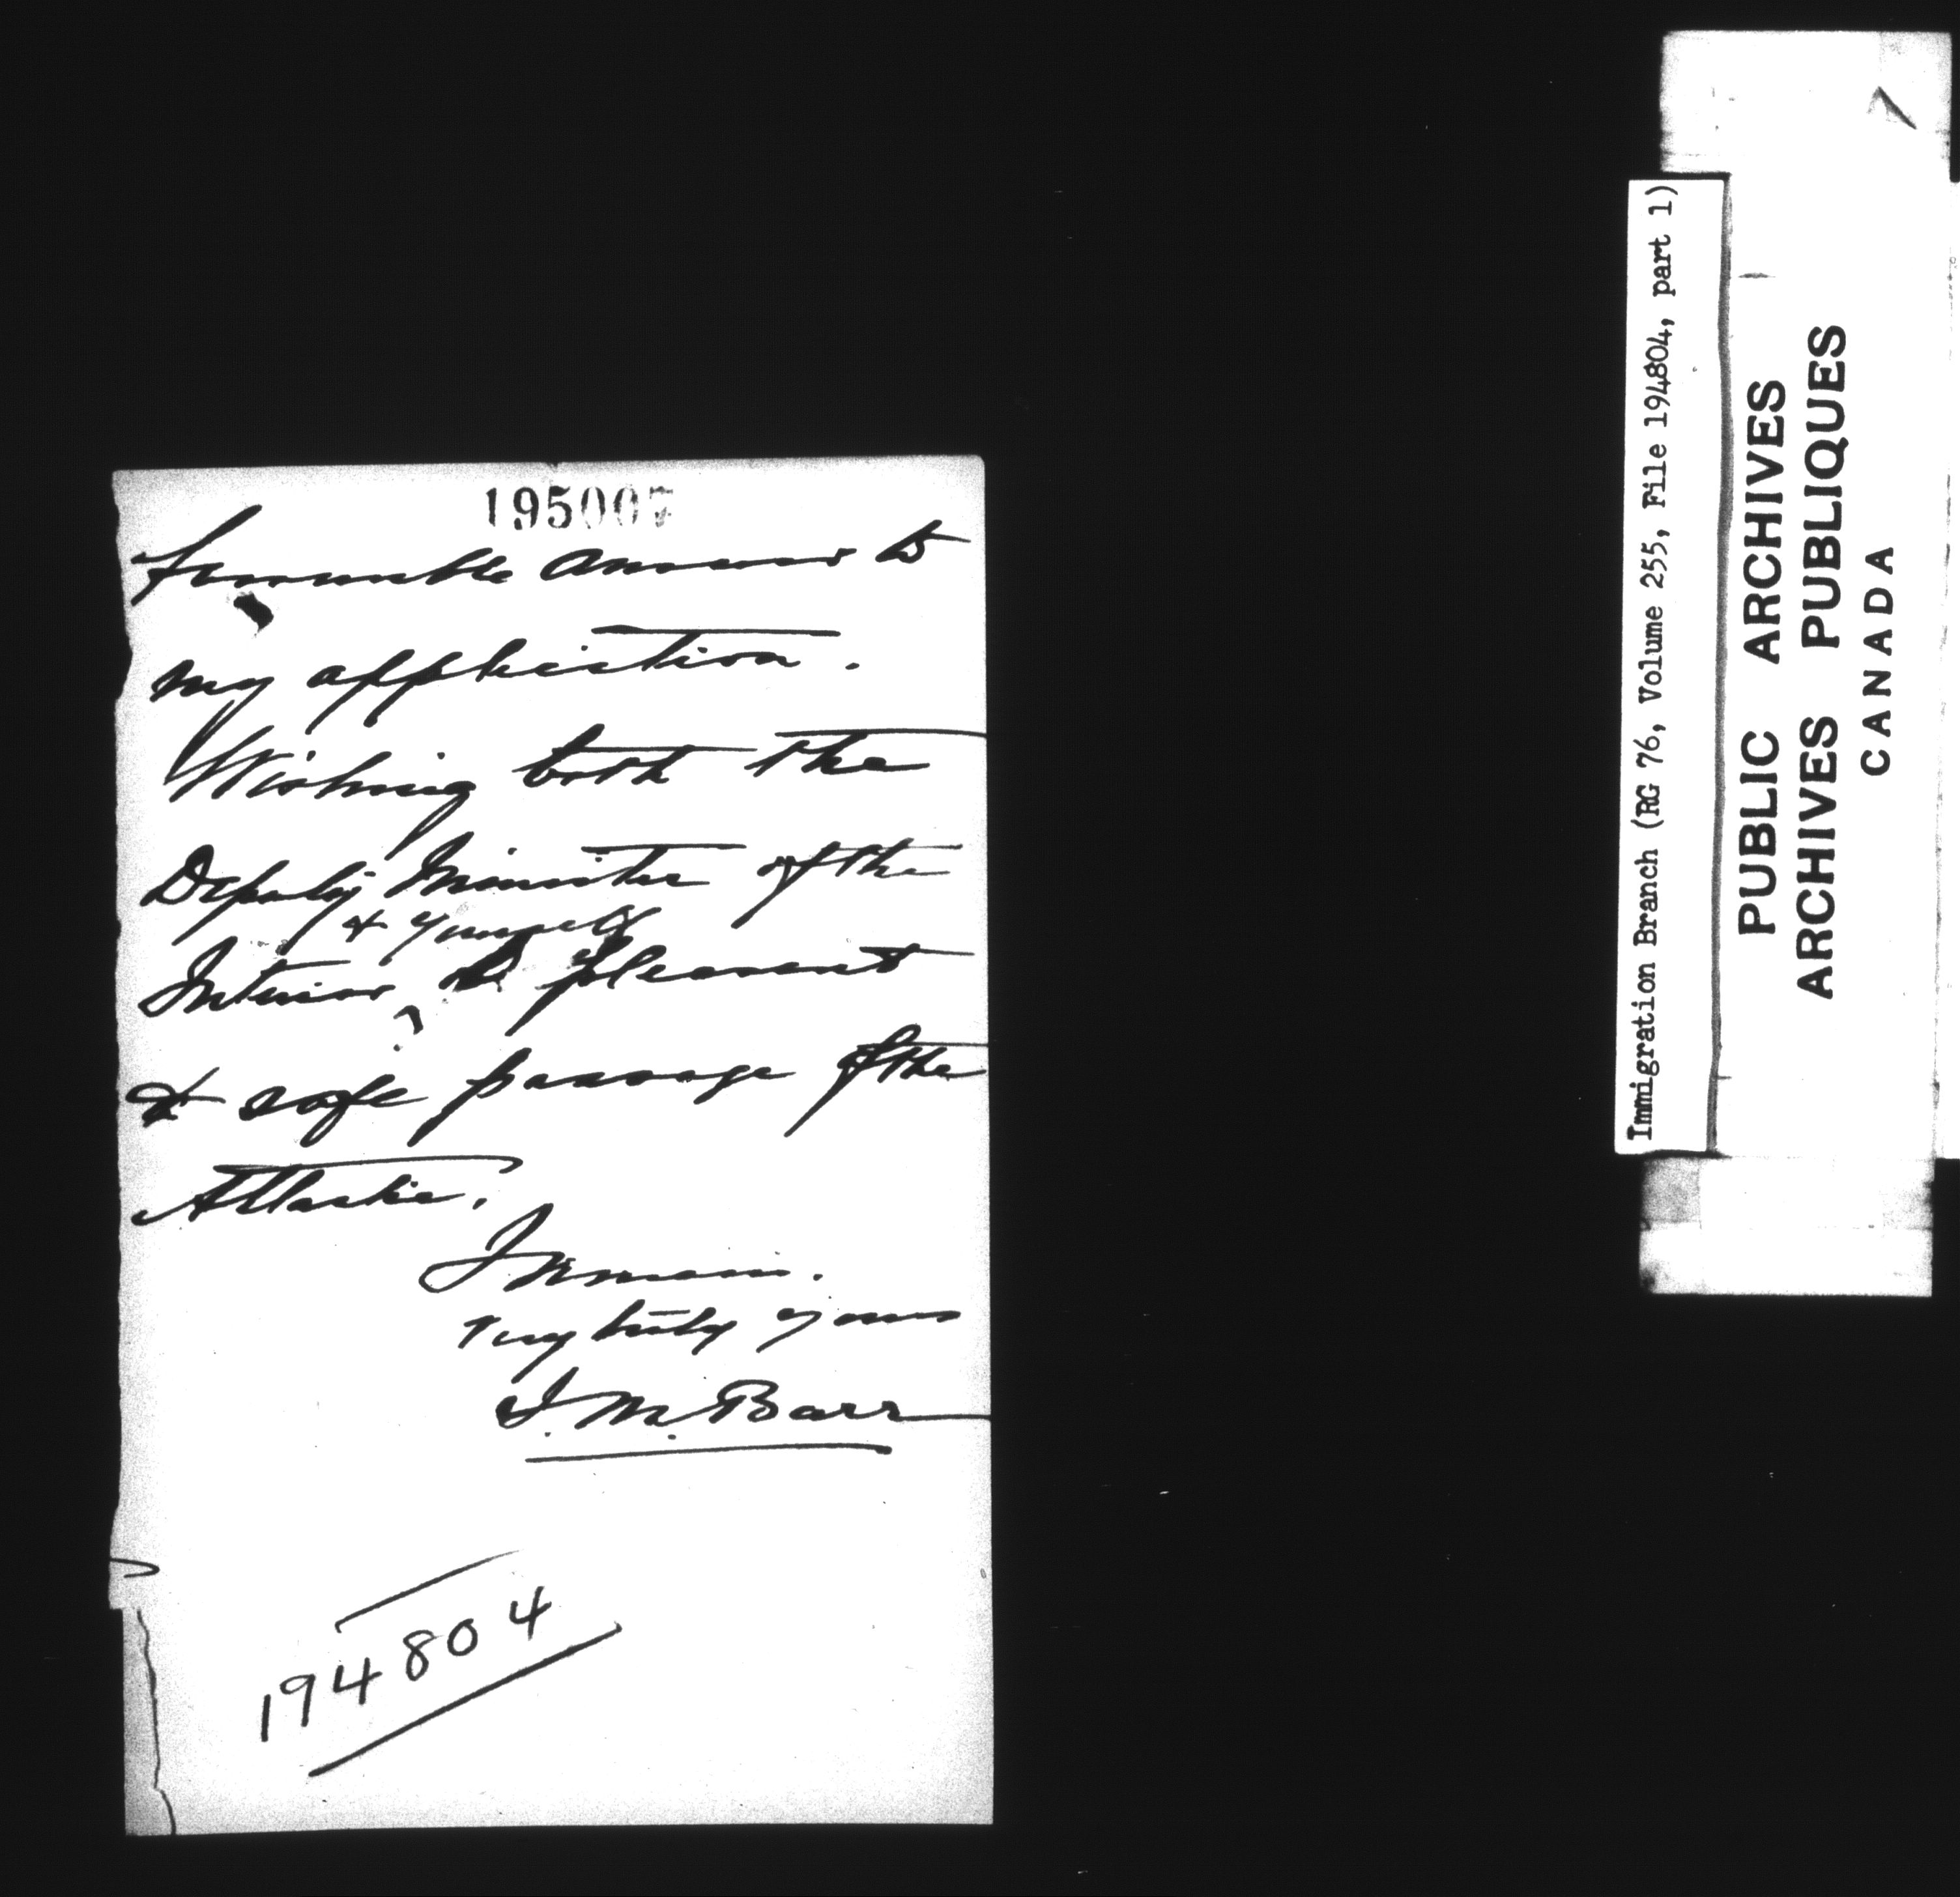 195007
favourable answer to
my application.
Wishing both the
Deputy Minister of the
& yourself
Interior, a pleasant
& safe passage of the
Atlantic.
I remain.
very truly yours
I. M. Barr
194804
Immigration Branch (RG 76, Volume 255, File 194804, part 1)
PUBLIC ARCHIVES
ARCHIVES PUBLIQUES
CANADA